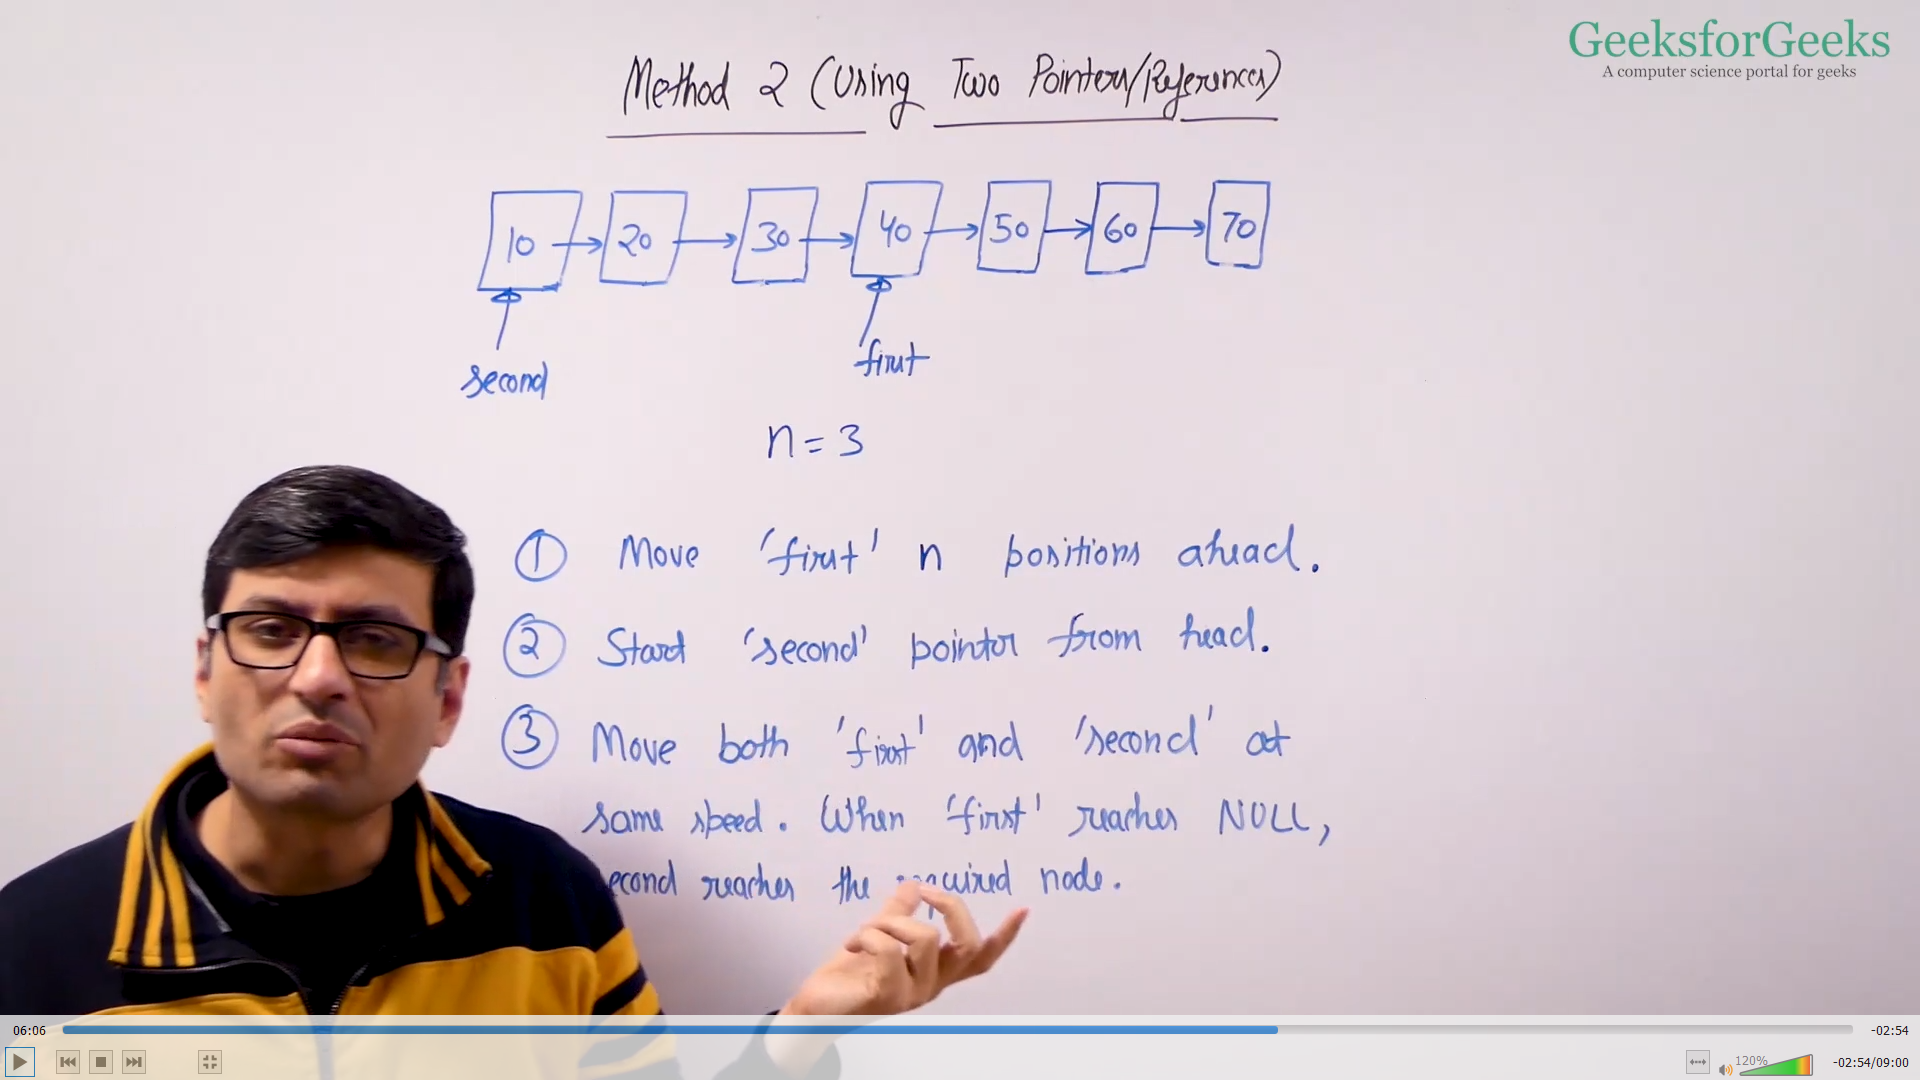 GeeksforGeeks
A computer science portal for geeks
Method 2 (Using Two Pointers/References)
10 20 30 40 50 60 70
second first
n = 3
1 Move 'first' n positions ahead.
2 Start 'second' pointer from head.
3 Move both 'first' and 'second' at
same speed. When 'first' reaches NULL,
econd reaches the required node.
06:06 -02:54
120% -02:54/09:00